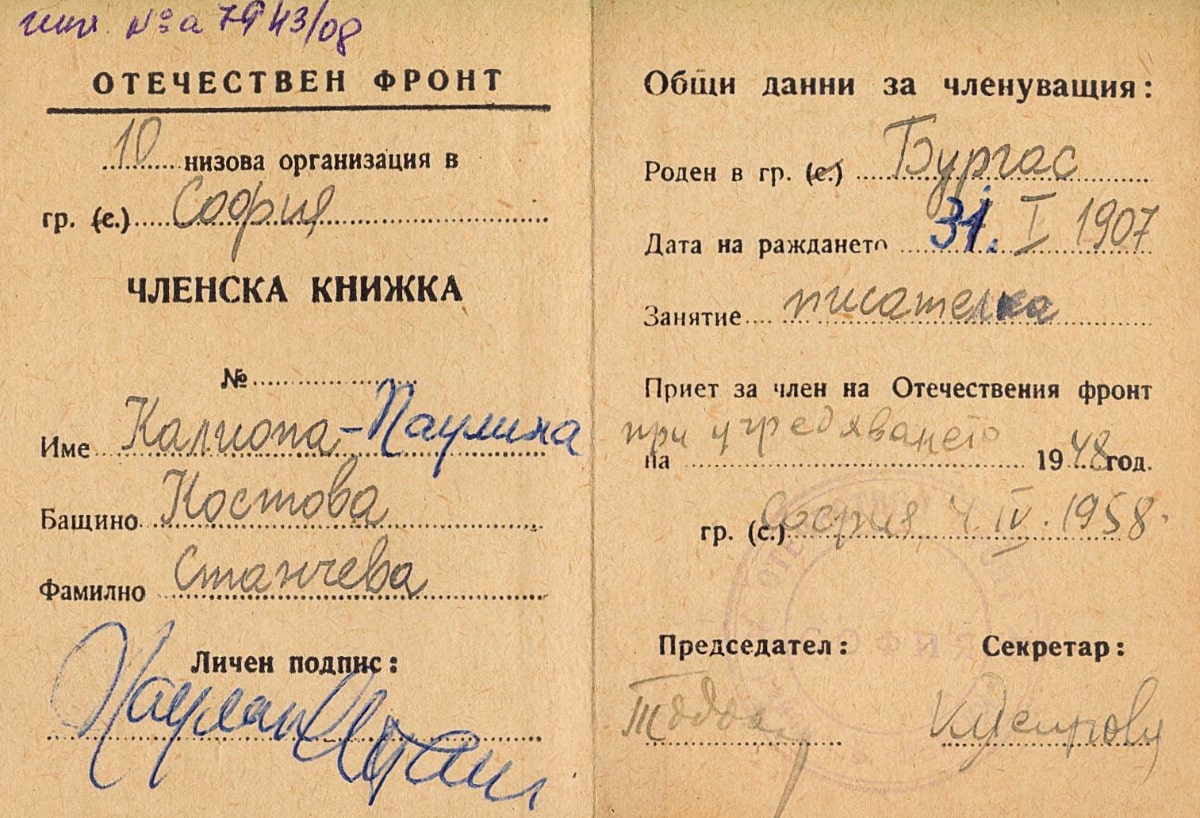 № а 7943/08
ОТЕЧЕСТВЕН ФРОНТ
10 низова организация в
гр. (с.) София
ЧЛЕНСКА КНИЖКА
№
Име Калиопа-Паулина
Бащино Костова
Фамилно Станчева
Личен подпис:
Общи данни за членуващия:
Роден в гр. (с.) Бургас
Дата на раждането 31. I 1907
Занятие писателка
Приет за член на Отечествения фронт
при учредяването
на 1948 год.
гр. (с.) София 4. IV. 1958.
Председател: Секретар: